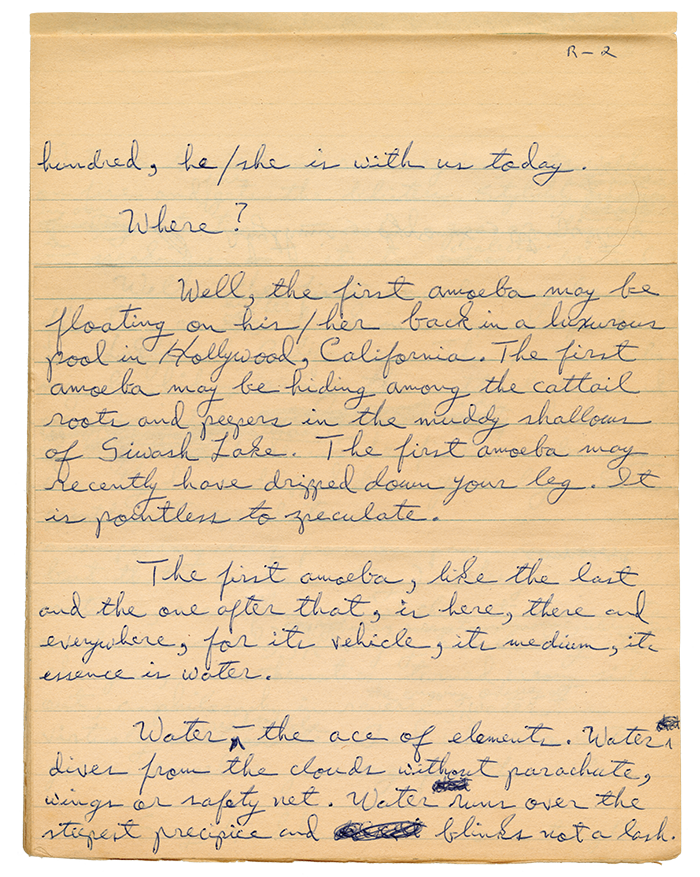 R-2
hundred, he/she is with us today.
Where?
Well, the first amoeba may be
floating on his/her back in a luxurous
pool in Hollywood, California. The first
amoeba may be hiding among the cattail
roots and peepers in the muddy shallows
of Siwash Lake. The first amoeba may
recently have dripped down your leg. It
is pointless to speculate.
The first amoeba, like the last
and the one after that, is here, there and
everywhere, for its vehicle, its medium, its
essence is water.
Water – the ace of elements. Water
dives from the clouds without parachute,
wings or safety net. Water runs over the
steepest precipice and blinks not a lash.